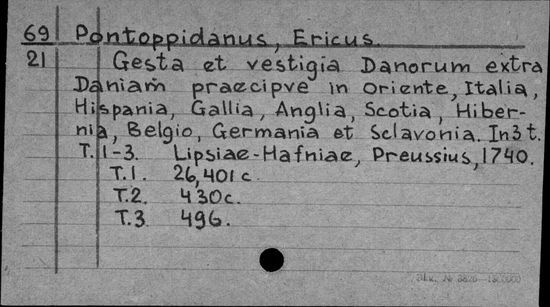 69 Pontoppidanus, Ericus.
21 Gesta et vestigia Danorum extra
Daniam praecipve in oriente, Italia,
Hispania, Gallia, Anglia, Scotia, Hiber-
nia, Belgio, Germania et Sclavonia. In 3 t.
T. 1-3. Lipsiae-Hafniae, Preussius, 1740.
T.1. 26,401 c.
T.2. 430c.
T.3 496.